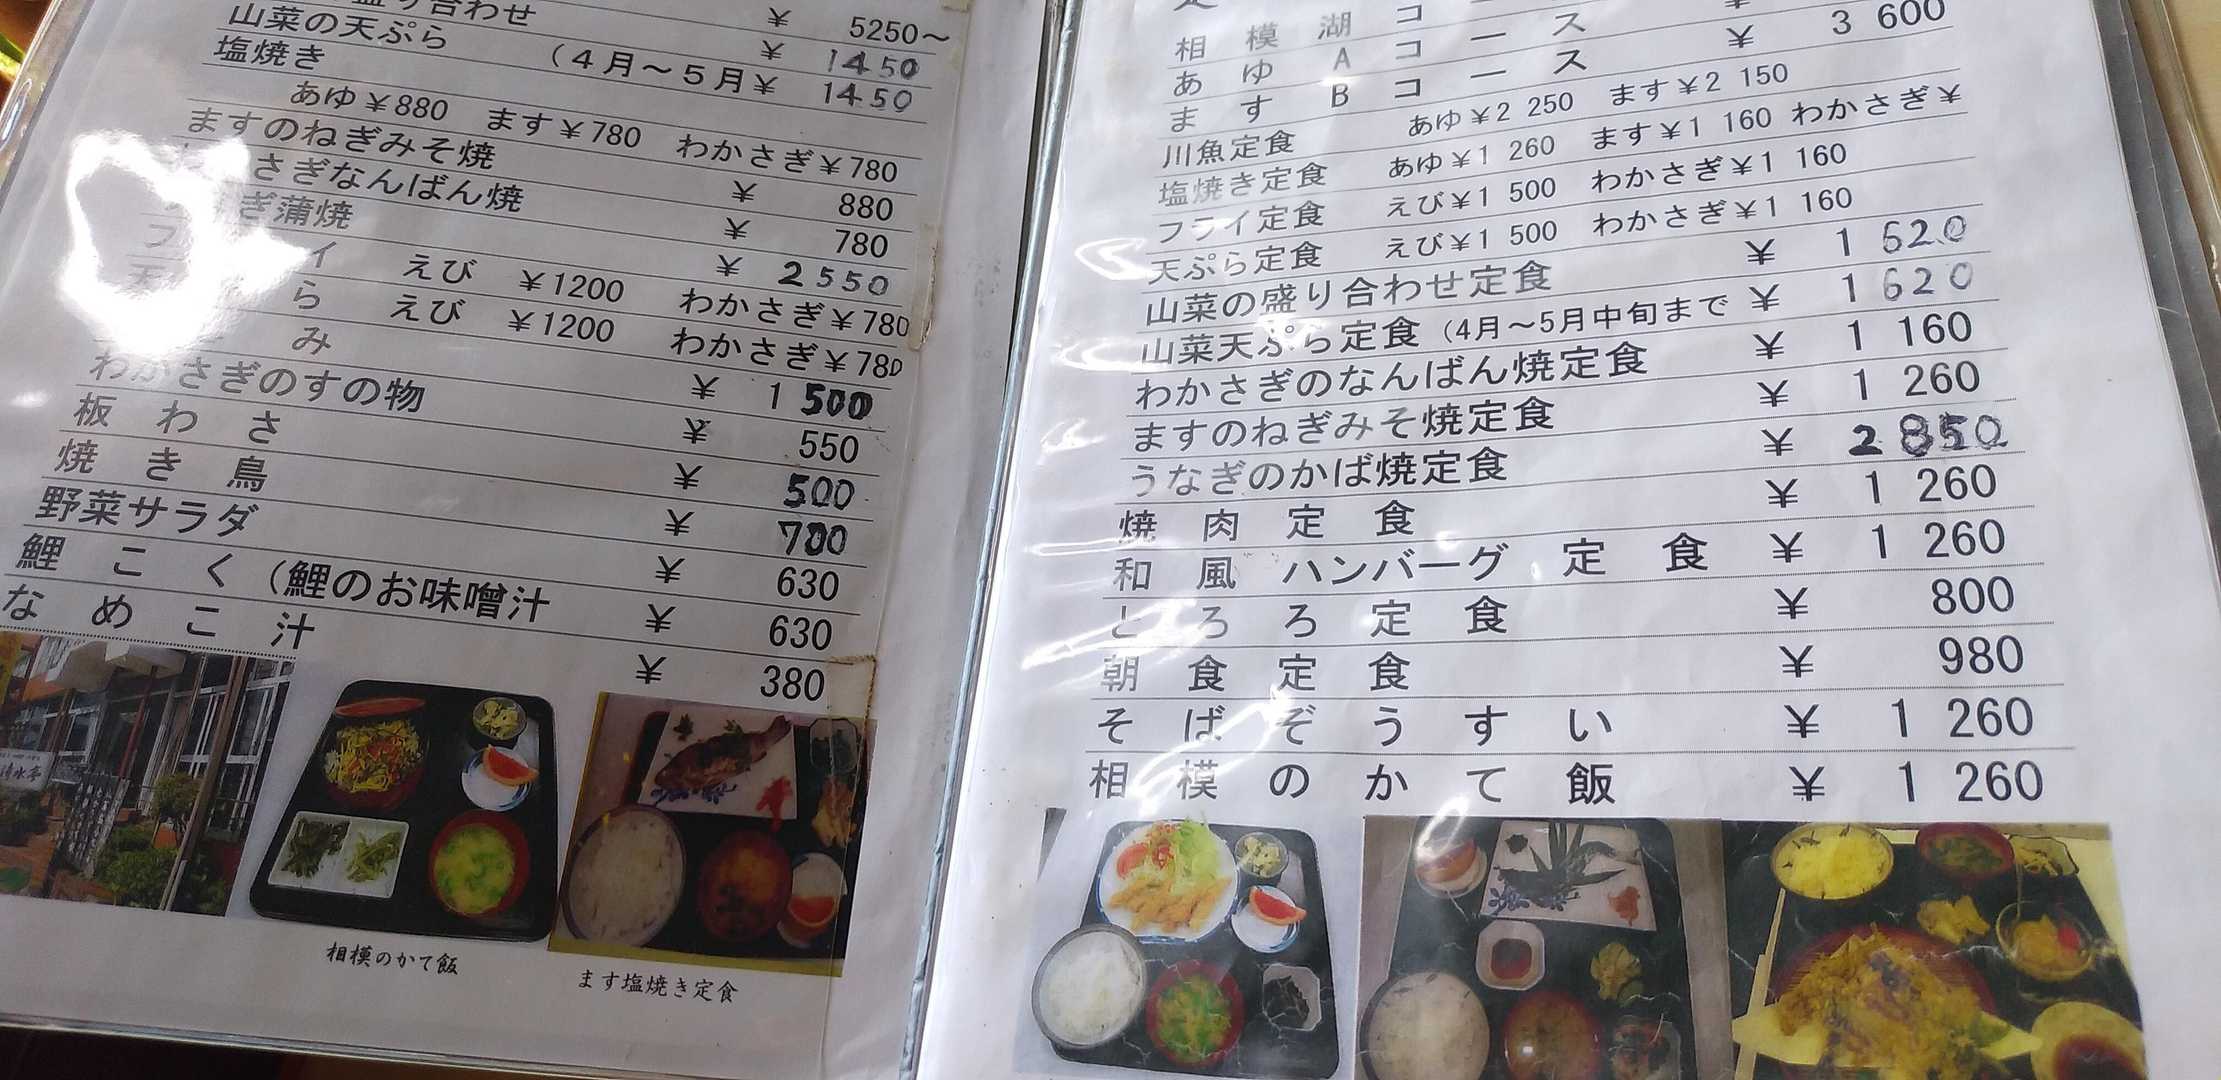 盛り合わせ ¥ 5250～
山菜の天ぷら (4月～5月 ¥ 1450
塩焼き ¥ 1450
あゆ¥880 ます¥780 わかさぎ¥780
ますのねぎみそ焼 ¥ 880
さぎなんばん焼 ¥ 780
ぎ蒲焼 ¥ 2550
フ イ えび ¥1200 わかさぎ¥780
天 ら えび ¥1200 わかさぎ¥780
み ¥ 1500
わかさぎのすの物 ¥ 550
板わさ ¥ 500
焼き鳥 ¥ 700
野菜サラダ ¥ 630
鯉こく(鯉のお味噌汁 ¥ 630
なめこ汁 ¥ 380
清水亭
相模のかて飯
ます塩焼き定食
相模湖コース
あゆAコース ¥ 3 600
ますBコース
川魚定食 あゆ¥2 250 ます¥2 150
塩焼き定食 あゆ¥1 260 ます¥1 160 わかさぎ¥
フライ定食 えび¥1 500 わかさぎ¥1 160
天ぷら定食 えび¥1 500 わかさぎ¥1 160
山菜の盛り合わせ定食 ¥ 1 620
山菜天ぷら定食(4月～5月中旬まで ¥ 1 620
わかさぎのなんばん焼定食 ¥ 1 160
ますのねぎみそ焼定食 ¥ 1 260
うなぎのかば焼定食 ¥ 2 850
焼肉定食 ¥ 1 260
和風ハンバーグ定食 ¥ 1 260
とろろ定食 ¥ 800
朝食定食 ¥ 980
そばぞうすい ¥ 1 260
相模のかて飯 ¥ 1 260